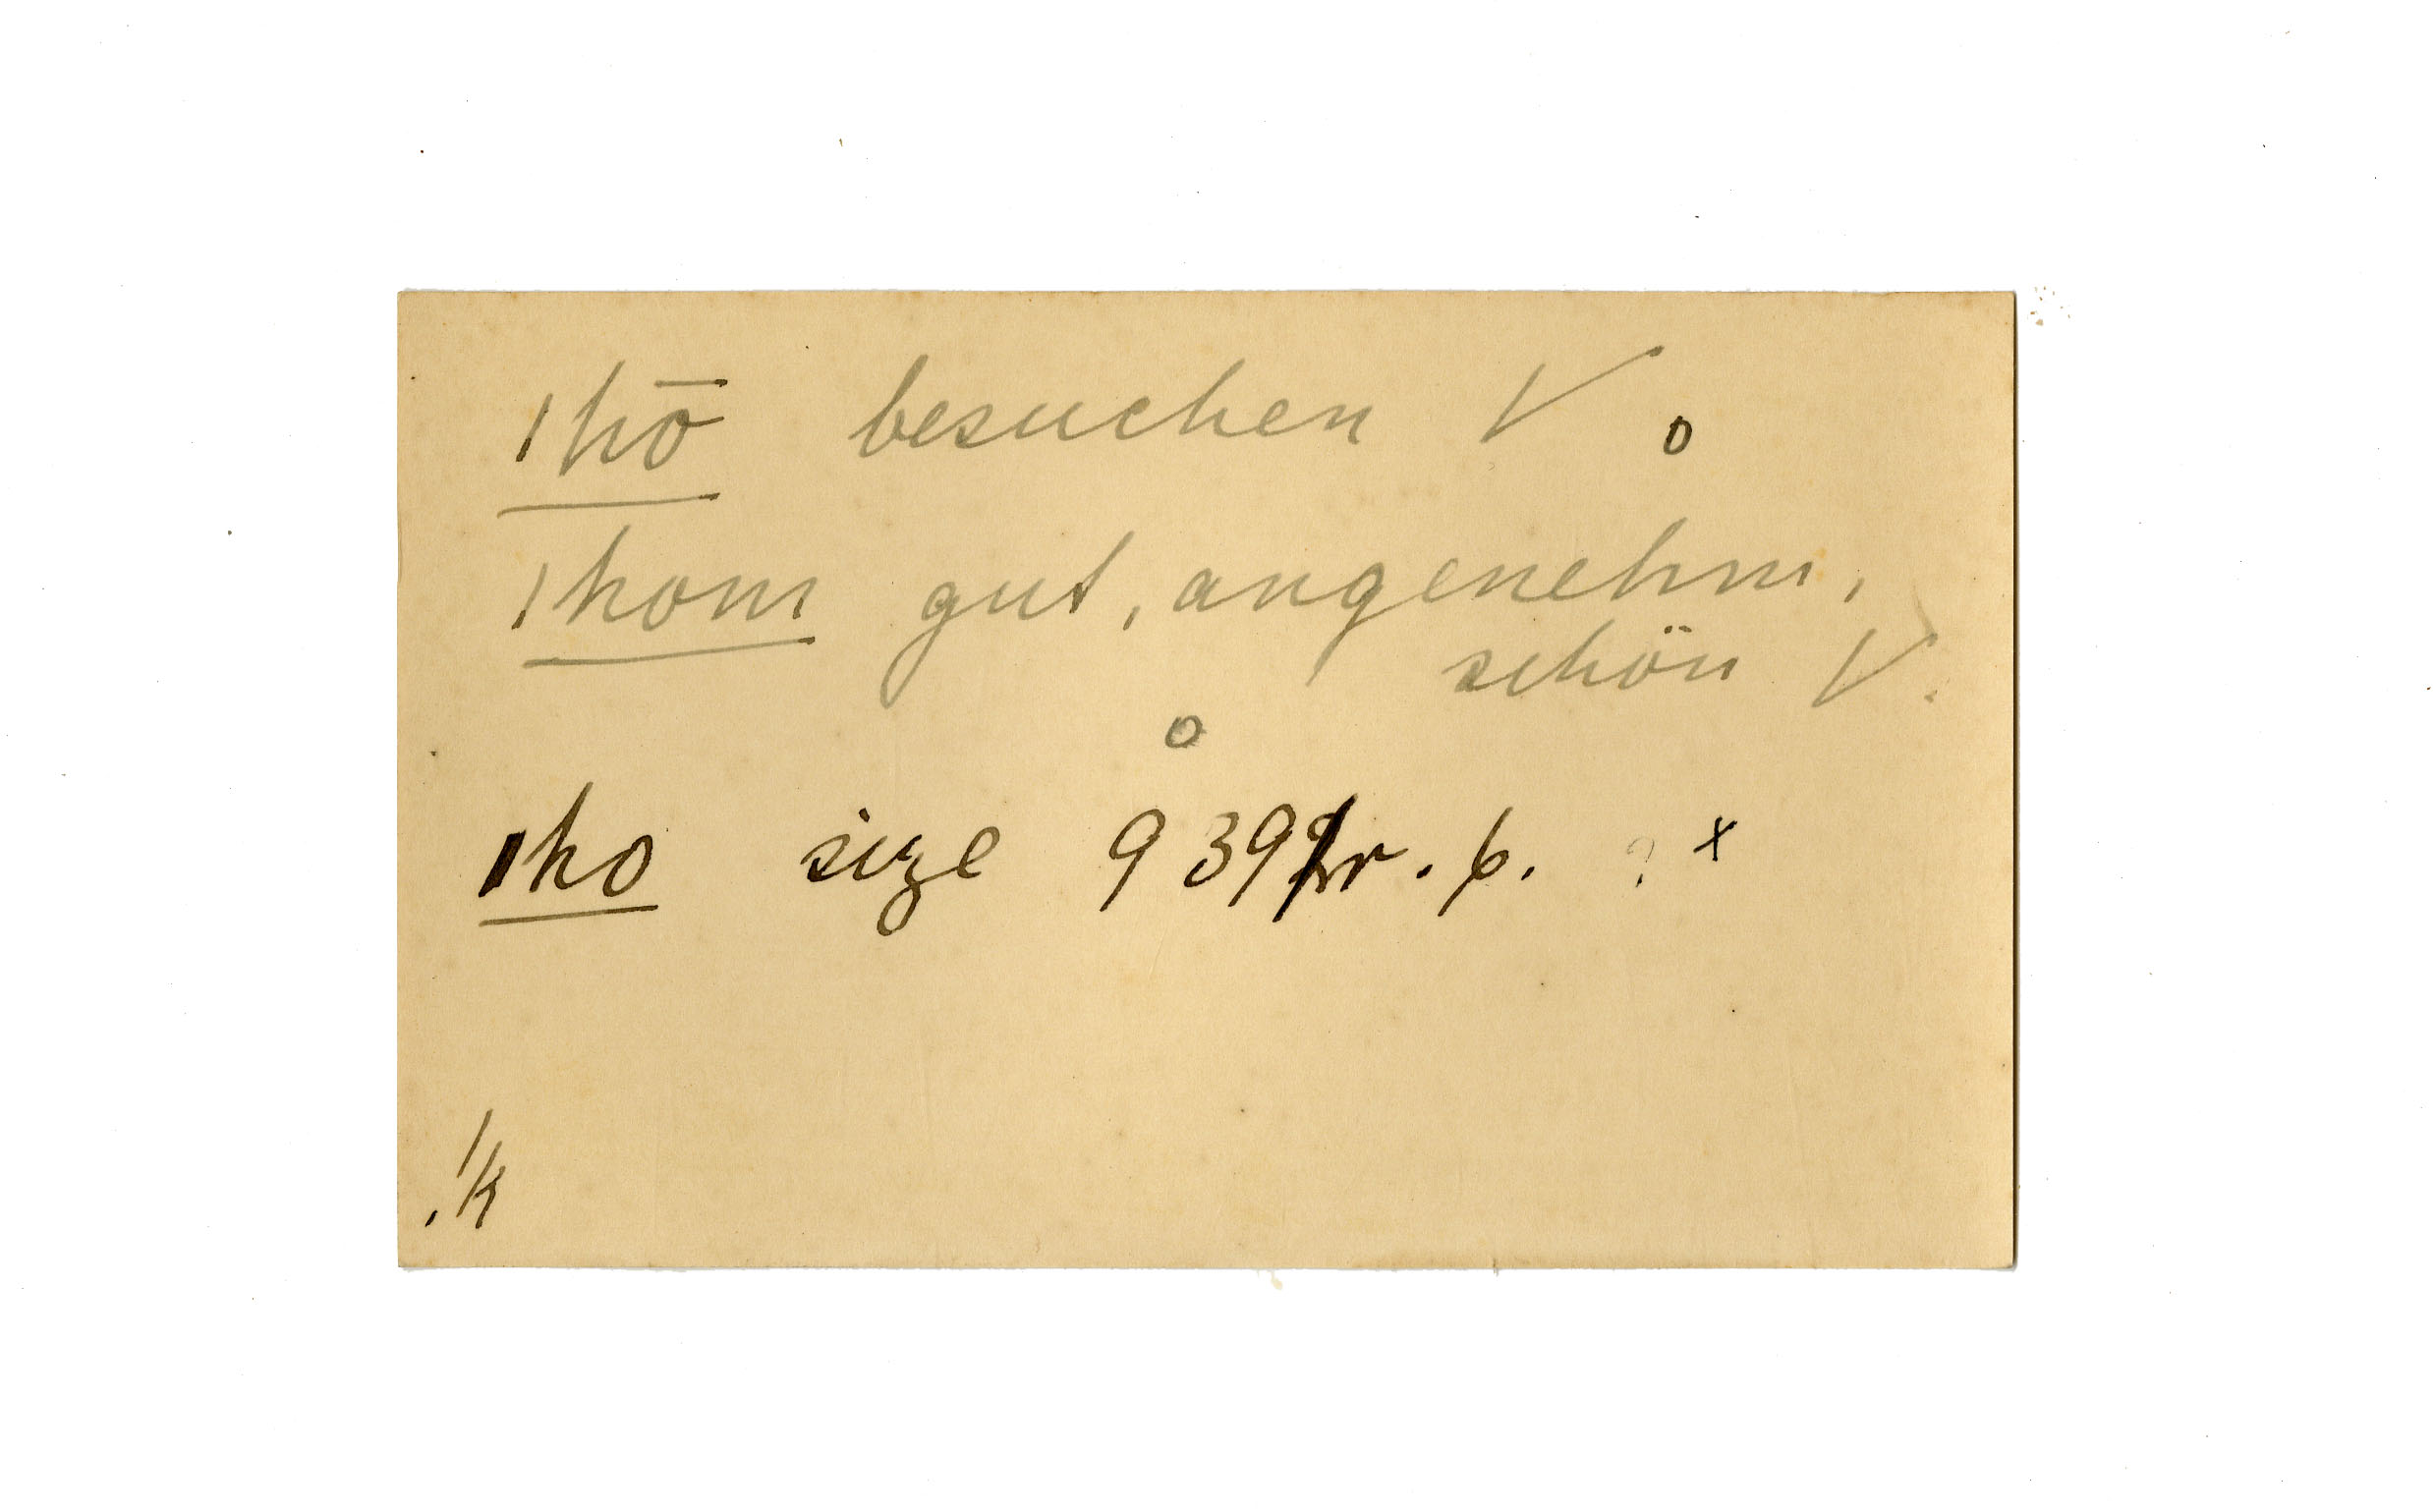 ˌhō besuchen V o
ˌhom gut, angenehm,
schön V.
o
ˌho size 9 39 r. b. ? x
/k